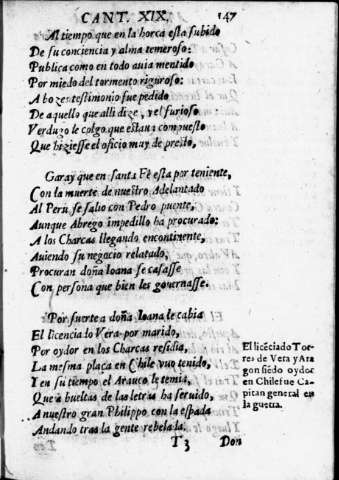 CANT. XIX. 147
Al tiempo que en la horca esta subido
De su conciencia y alma temeroso:
Publica como en todo auia mentido
Por miedo del tormento riguroso:
A bozes testimonio fue pedido
De aquello que alli dize, y el furioso
Verdugo le colgo que estaua compuesto
Que hiziesse el oficio muy de presto,
Garay que en santa Fè esta por teniente,
Con la muerte de nuestro Adelantado
Al Peru se salio con Pedro puente,
Aunque Abrego impedillo ha procurado:
A los Charcas llegando encontinente,
Auiendo su negocio relatado,
Procuran doña Ioana se casasse
Con persona que bien les gouernasse.
Por fuerte a doña Ioana le cabia
El licenciado Vera por marido,
Por oydor en los Charcas residia,
La mesma plaça en Chile vuo tenido,
Y en su tiempo el Arauco le temia,
Que à bueltas de las letras ha seruido,
A nuestro gran Philippo con la espada
Andando tras la gente rebelada.
El licẽciado Tor-
res de Vera y Ara
gon siẽdo oydor
en Chile fue Ca-
pitan general en
la guerra.
T 3 Don